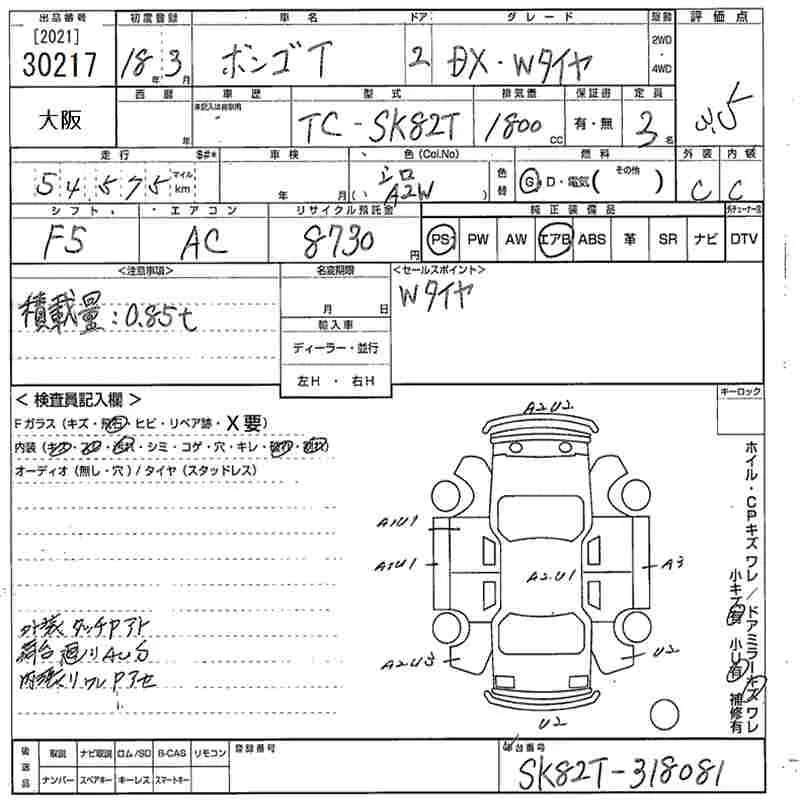 出品番号 初度登録 車名 ドア グレード 駆動 評価点
[2021]
30217 18年 3月 ボンゴT 2 DX・Wタイヤ 2WD・4WD
3.5
大阪 西暦 年 車歴 未記入は自家用 型式 TC-SK82T 排気量 1800cc 保証書 有・無 定員 3名
走行 $#* 車検 色(Col.No) 色替 燃料 外装 内装
54,575 マイル km 年 月 シロ (A2W) G・D・電気(その他) C C
シフト エアコン リサイクル預託金 純正装備品
F5 AC 8730円 PS PW AW エアB ABS 革 SR ナビ DTV
<注意事項> 名変期限 <セールスポイント>
積載量:0.85t 月 日 Wタイヤ
輸入車
ディーラー・並行
左H・右H
<検査員記入欄> キーロック
Fガラス(キズ・飛石・ヒビ・リペア跡・X要)
オーディオ(無し・穴)/タイヤ(スタッドレス)
A2U2
A1U1
A1U1
A2U1
A3
A2U3
U2
U2
ホイル・CPキズ ワレ/ドアミラーキズ ワレ
小キズ有 小U有 補修有
外装タッチPアト
荷台廻りAU分
後送品 取説 ナビ取説 ロム/SD B-CAS リモコン 登録番号 車台番号
ナンバー スペアキー キーレス スマートキー SK82T-318081